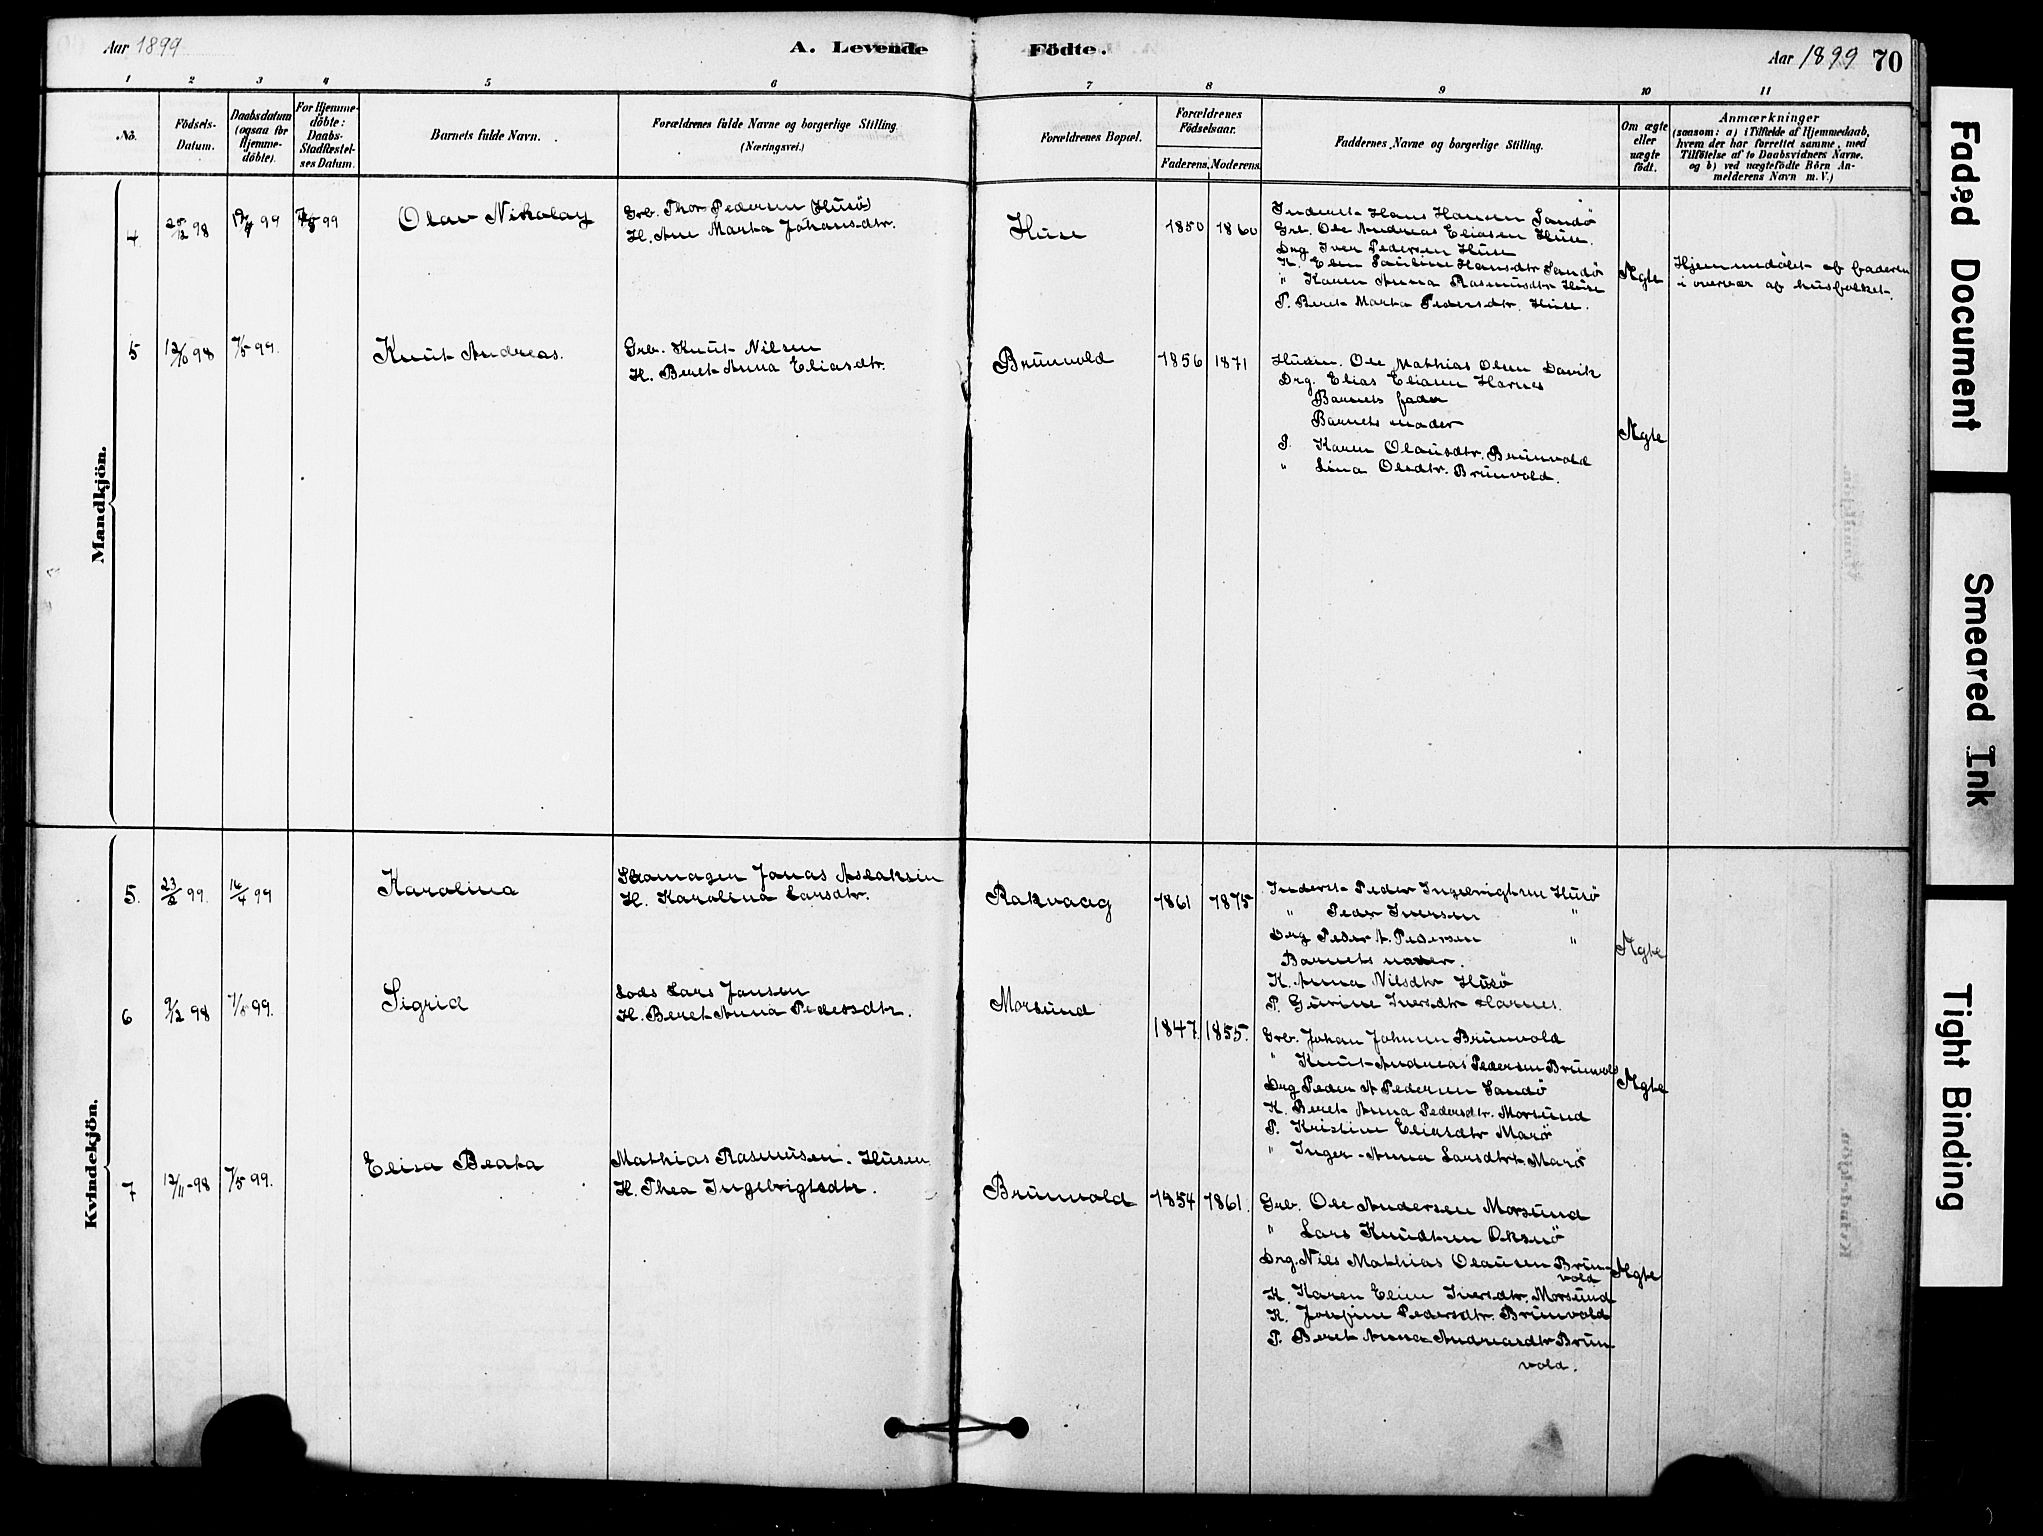 Aar 1899
A. Levende Födte.
Aar 1899 70
1 2 3 4 5 6 7 8 9 10 11
No.
Födsels-
Datum.
Daabsdatum
(ogsaa for
Hjemme-
döbte).
For Hjemme-
döbte:
Daabs-
Stadfæstel-
ses Datum.
Barnets fulde Navn.
Forældrenes fulde Navne og borgerlige Stilling.
(Næringsvei.)
Forældrenes Bopæl.
Forældrenes
Födselsaar.
Faderens. Moderens.
Faddernes Navne og borgerlige Stilling.
Om ægte
eller
uægte
födt.
Anmærkninger
(saasom: a) i Tilfælde af Hjemmedaab,
hvem der har forrettet samme, med
Tilföielse af to Daabsvidners Navne.
og b) ved uægtefödte Börn An-
melderens Navn m. V.)
Mandkjön.
4 25/12 98 99 99 Olav Nikolay
Grb. Thor Pedersen (Husö)
H. Ane Marta Johansdtr.
Huse 1850 1860
Inderst Hans Hansen Sandö
Grb. Ole Andreas Eliasen Huse.
Drg. Iver Pedersen Huse
K. Elen Pauline Hansdtr Sandö
" Karen Anna Rasmusdtr Huse
P. Beret Marta Pedersdtr. Huse.
Ægte
Hjemmedöbt af faderen
i overvær af husfolket.
5 12/10 98 7/5 99. Knut Andreas.
Grb. Knut Nilsen
H. Beret Anna Eliasdtr.
Brunvold 1856 1871
Husm. Ole Mathias Olsen Davik
Drg. Elias Eliasen Harnes
Barnets fader
Barnets moder
P. Karen Olausdtr. Brunvold
" Lina Olsdtr. Brunvold.
Ægte
Kvindekjön.
5. 23/2 99. 16/4 99 Karolina
Skomager Jonas Aslaksen
H. Karolina Larsdtr.
Rakvaag 1861 1875
Inderst Peder Ingebrigtsen Husö
" Peder Iversen "
Drg Peder A. Pedersen "
Barnets moder.
K. Anna Nilsdtr Husö
P. Gurine Iversdtr Harnes.
Ægte
6 9/12 98 7/5 99. Sigrid
Lods Lars Jansen
H. Beret Anna Pedersdtr.
Morsund
1847. 1855.
Grb. Johan Johnsen Brunvold
" Knut Andreas Pedersen Brunvold
Drg Peder A Pedersen Sandö
K. Beret Anna Pedersdtr. Morsund
P. Kristine Eliasdtr Marö
" Inger-Anna Larsdtr Marö
Ægte
7 12/11-98 7/5 99. Elisa Beata
Mathias Rasmusen. Husm
H. Thea Ingebrigtsdtr.
Brunvold 1854 1861.
Grb. Ole Andersen Morsund
" Lars Knudtsen Oksnö
Drg. Nils Mathias Olausen Brun-
vold
K. Karen Eline Iversdtr. Morsund
K. Josefine Pedersdtr. Brunvold
P. Beret Anna Andreasdtr Brun-
vold.
Ægte
Faded Document
Smeared Ink
Tight Binding